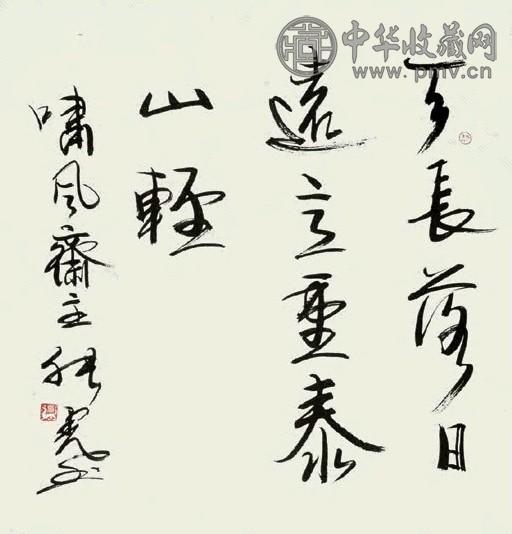 中华收藏网
www.pmv.cn
天長落日
遠言重泰
山輕
嘯風齋主